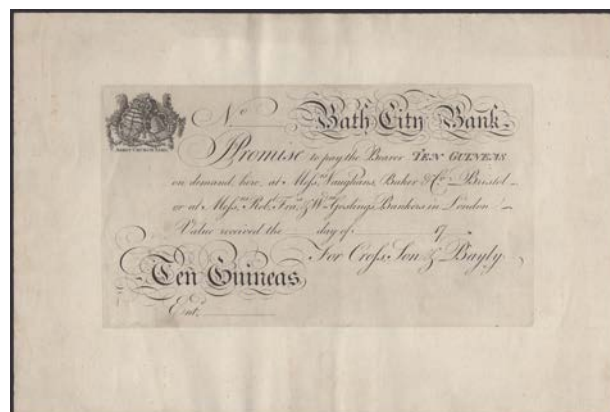 ABBEY CHURCH YARD
No Bath City Bank.
I Promise to pay the Bearer TEN GUINEAS
on demand, here, at Messrs Vaughans, Baker & Co Bristol
or at Messrs Robt Fras & Wm Goslings, Bankers in London
Value received the day of 17
For Cross, Son & Bayly
Ten Guineas
Entd